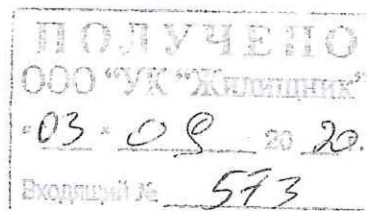 ПОЛУЧЕНО
ООО "УК "Жилищник"
"03" 09 2020.
Входящий № 573